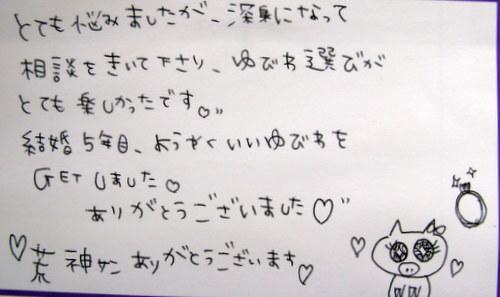 とても悩みましたが、深身になって
相談をきいて下さり、ゆびわ選びが
とても楽しかったです♡〃
結婚5年目、ようやくいいゆびわを
GETしました♡
ありがとうございました♡〃
♡荒神サンありがとうございます♡